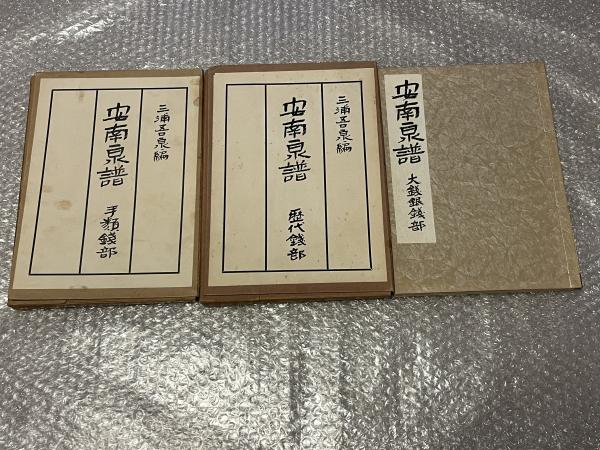 三浦吾泉編
安南泉譜
手類錢部
三浦吾泉編
安南泉譜
歴代錢部
安南泉譜
大錢銀錢部